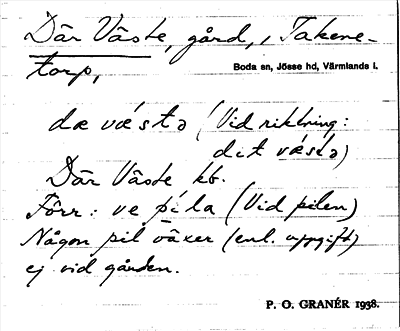 Där Väste, gård, i Takene-
torp,
Boda sn, Jösse hd, Värmlands l.
dæ vǽstə (Vid riktning:
dit vǽstə)
Där Väste kb.
Förr: ve pi´la (Vid pilen)
Någon pil växer (enl. uppgift)
ej vid gården.
P. O. GRANÉR 1938.